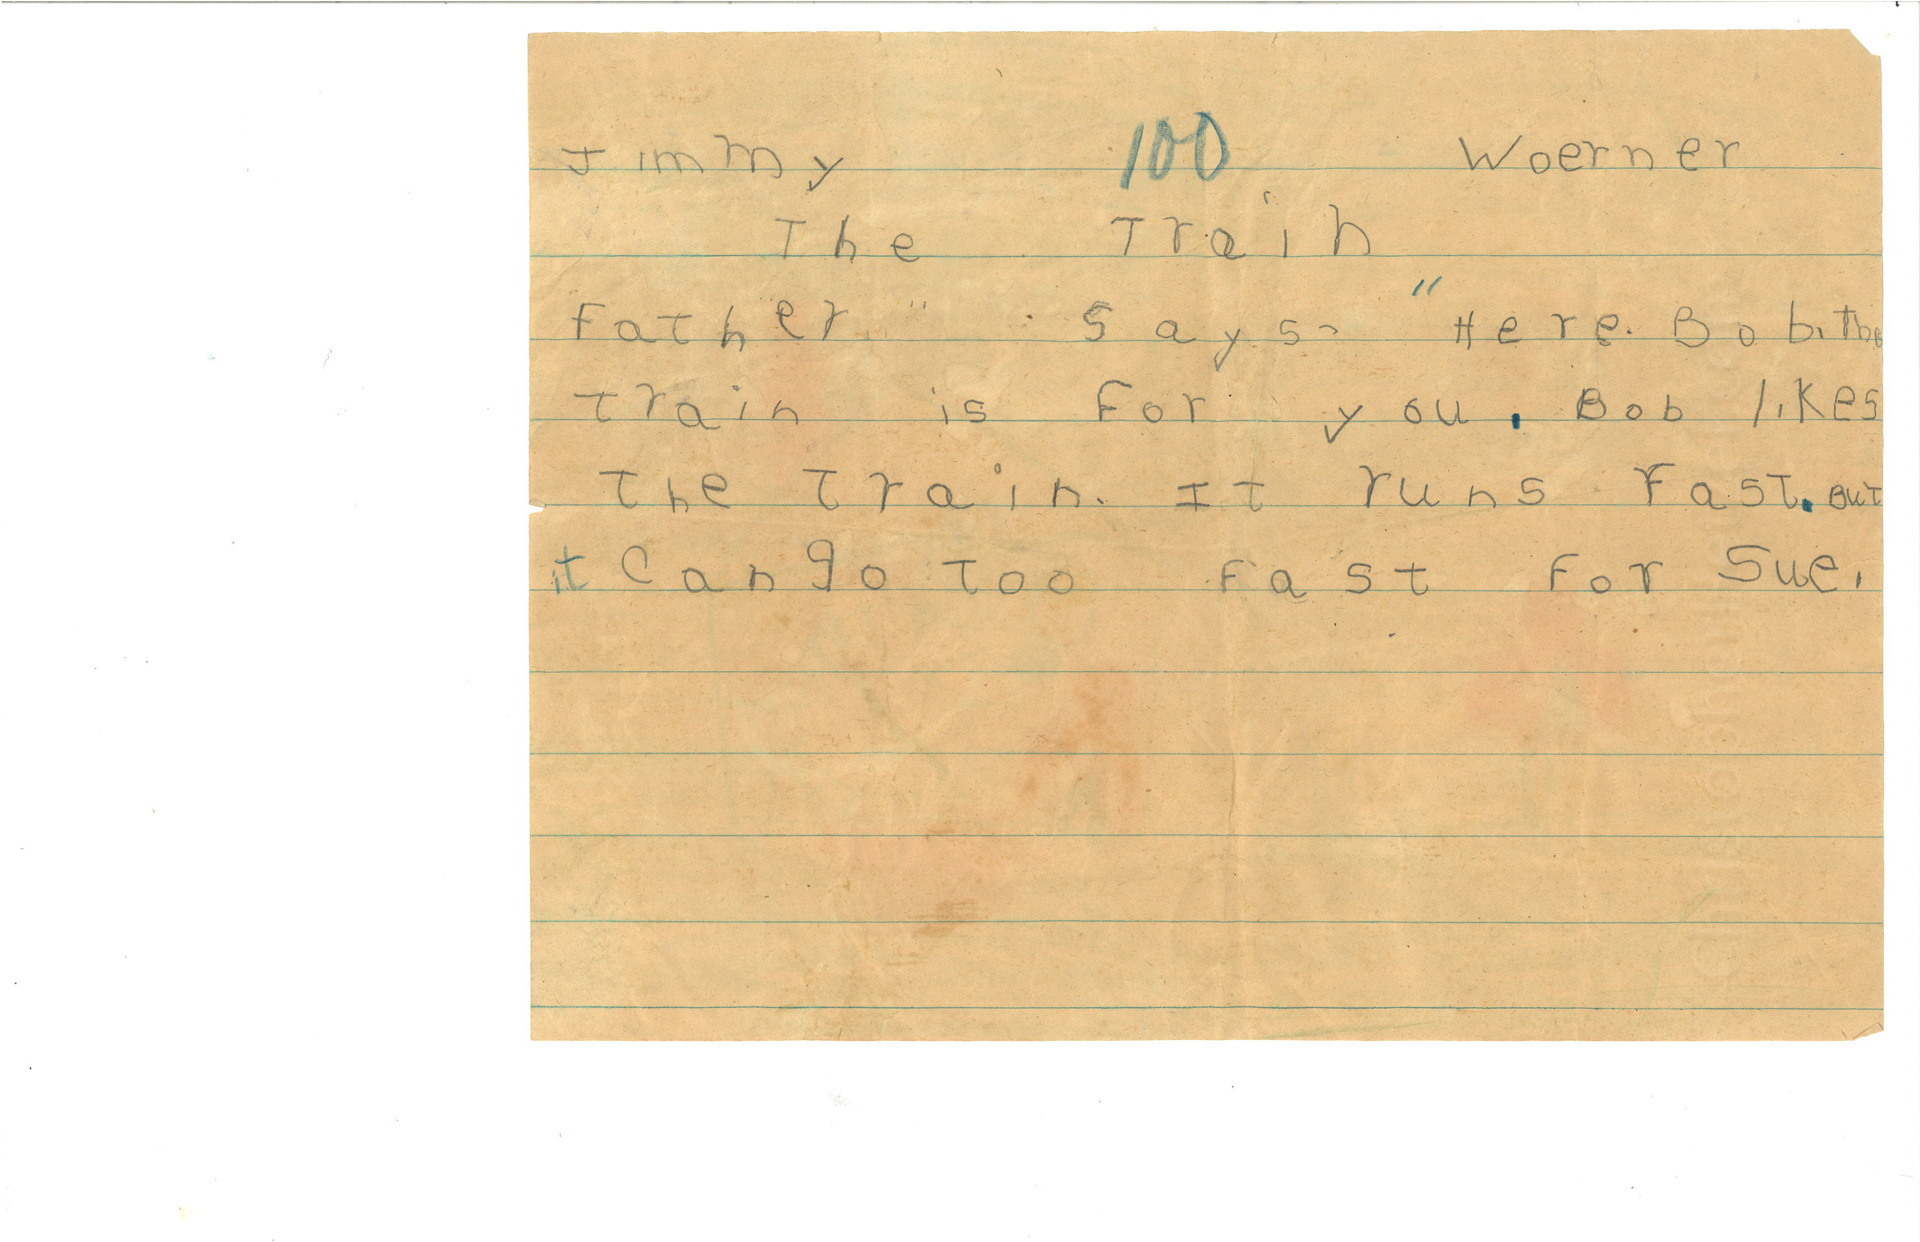 Jimmy 100 Woerner
The Train
Father " says, " Here. Bob. The
train is for you. Bob likes
the train. It runs fast. But
it can go too fast for Sue.